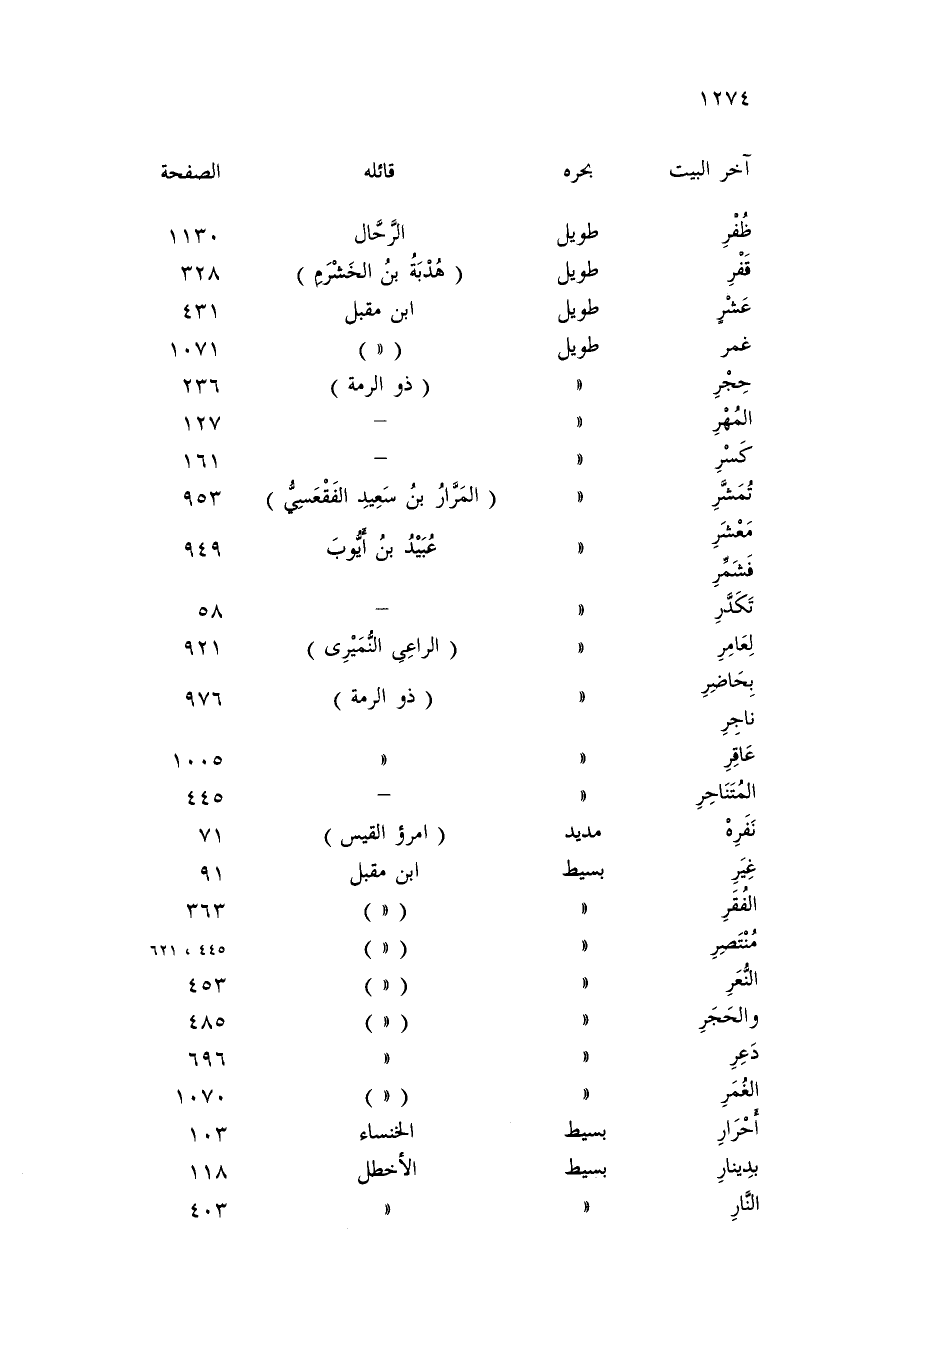 ١٢٧٤
آخر البيت بحره قائله الصفحة
ظُفْرِ طويل الرَّحَّال ١١٣٠
قَفْرِ طويل ( هُدْبَةُ بنُ الخَشْرَمِ ) ٣٢٨
عَشْرٍ طويل ابن مقبل ٤٣١
غمر طويل ( » ) ١٠٧١
حِجْرِ » ( ذو الرمة ) ٢٣٦
المُهْرِ » — ١٢٧
كَسْرِ » — ١٦١
تُمَشَّرِ » ( المَرَّارُ بنُ سَعِيدِ الفَقْعَسِيُّ ) ٩٥٣
مَعْشَرِ
» عُبَيْدُ بنُ أَيُّوبَ ٩٤٩
فَشَمِّرِ
تَكَدَّرِ » — ٥٨
لِعَامِرِ » ( الراعِي النُّمَيْرِى ) ٩٢١
بِحَاضِرِ
» ( ذو الرمة ) ٩٧٦
ناجِرِ
عَاقِرِ » » ١٠٠٥
المُتَنَاحِرِ » — ٤٤٥
نَفَرِهْ مديد ( امرؤ القيس ) ٧١
غِيَرِ بسيط ابن مقبل ٩١
الفُقَرِ » ( » ) ٣٦٣
مُنْتَصِرِ » ( » ) ٤٤٥ ، ٦٢١
النُّعَرِ » ( » ) ٤٥٣
والحَجَرِ » ( » ) ٤٨٥
دَعِرِ » » ٦٩٦
الغُمَرِ » ( » ) ١٠٧٠
أَحْرَارِ بسيط الخنساء ١٠٣
بدِينارِ بسيط الأخطل ١١٨
النَّارِ » » ٤٠٣